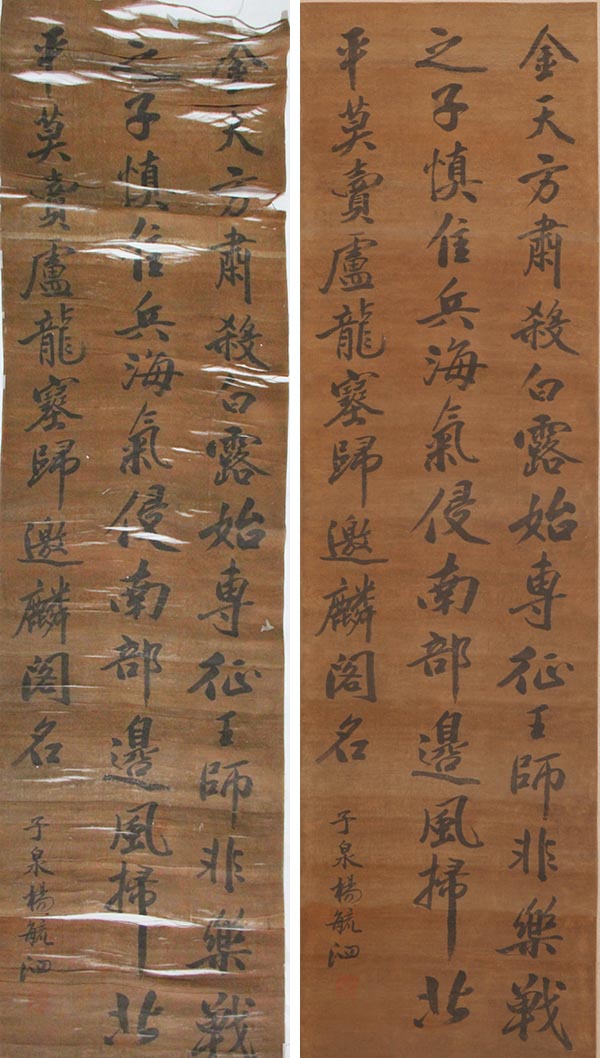 金天方肅殺白露始專征王師非樂戰
之子慎佳兵海氣侵南部邊風掃北
平莫賣盧龍塞歸邀麟閣名
子泉楊毓泗
金天方肅殺白露始專征王師非樂戰
之子慎佳兵海氣侵南部邊風掃北
平莫賣盧龍塞歸邀麟閣名
子泉楊毓泗